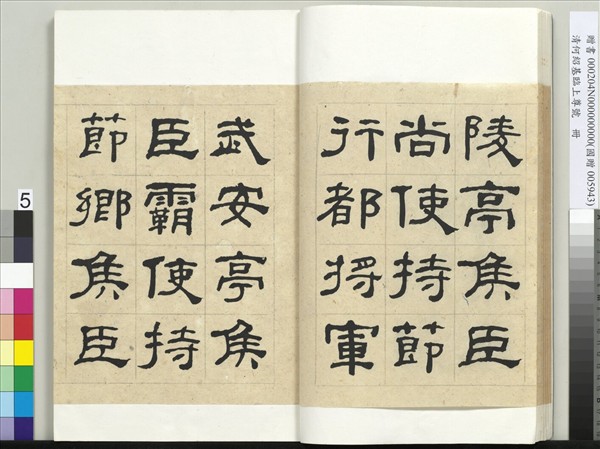 陵亭侯臣
尚使持節
行都将軍
武安亭侯
臣霸使持
節鄉侯臣
贈書 000204N000000000(國贈 005943)
清何紹基臨上尊號 冊
5